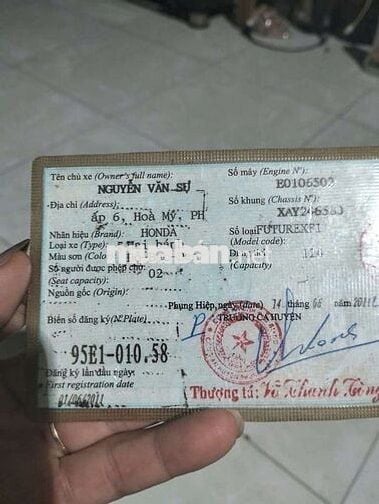 Tên chủ xe (Owner's full name): Số máy (Engine Nº)
NGUYỄN VĂN SỰ E0106502
Địa chỉ (Address): Số khung (Chassis Nº)
ấp 6, Hoà Mỹ, PH
Nhãn hiệu (Brand): HONDA Số loại FUTUREXFI
Loại xe (Type): (Model code):
Màu sơn
Số người được phép chở: 02 (Capacity)
(Seat capacity)
Nguồn gốc (Origin):
Phụng Hiệp, ngày (date) 14 tháng 06
Biển số đăng ký (Nº Plate) TRƯỞNG CA HUYỆN
95E1-010.58
Đăng ký lần đầu ngày:
First registration date
01/06/2011
Thượng tá: Võ Thanh Tòng
muaban.net